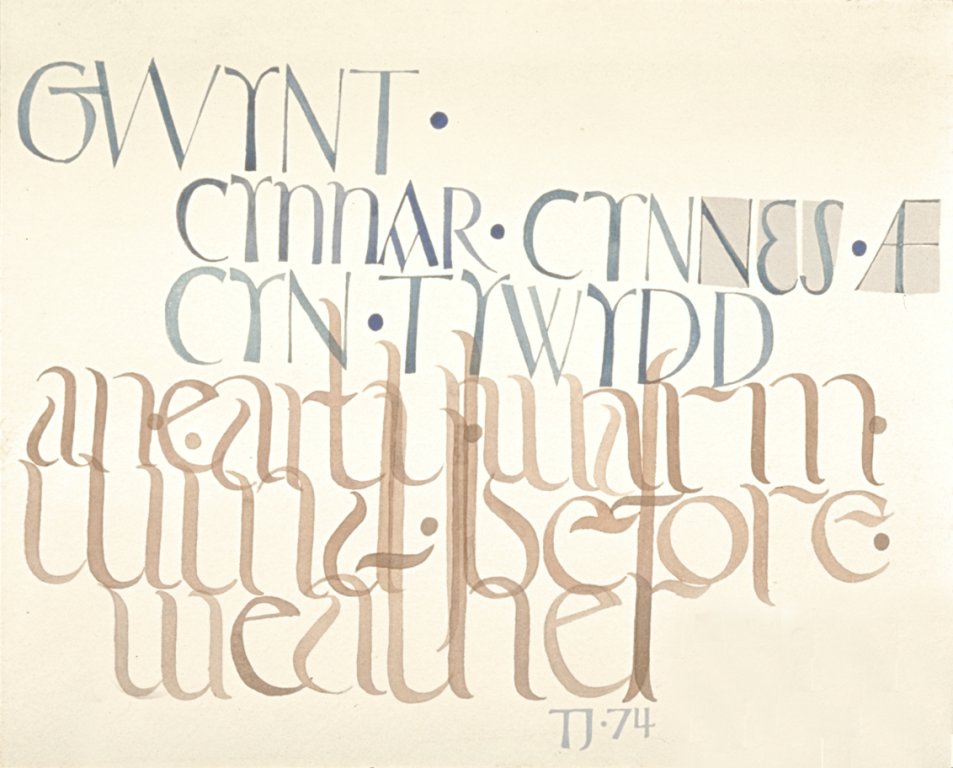 GWYNT ·
CYNNAR · CYNNES · Æ
CYN · TYWYDD
an · early · warm ·
wind · before ·
weather
TJ · 74